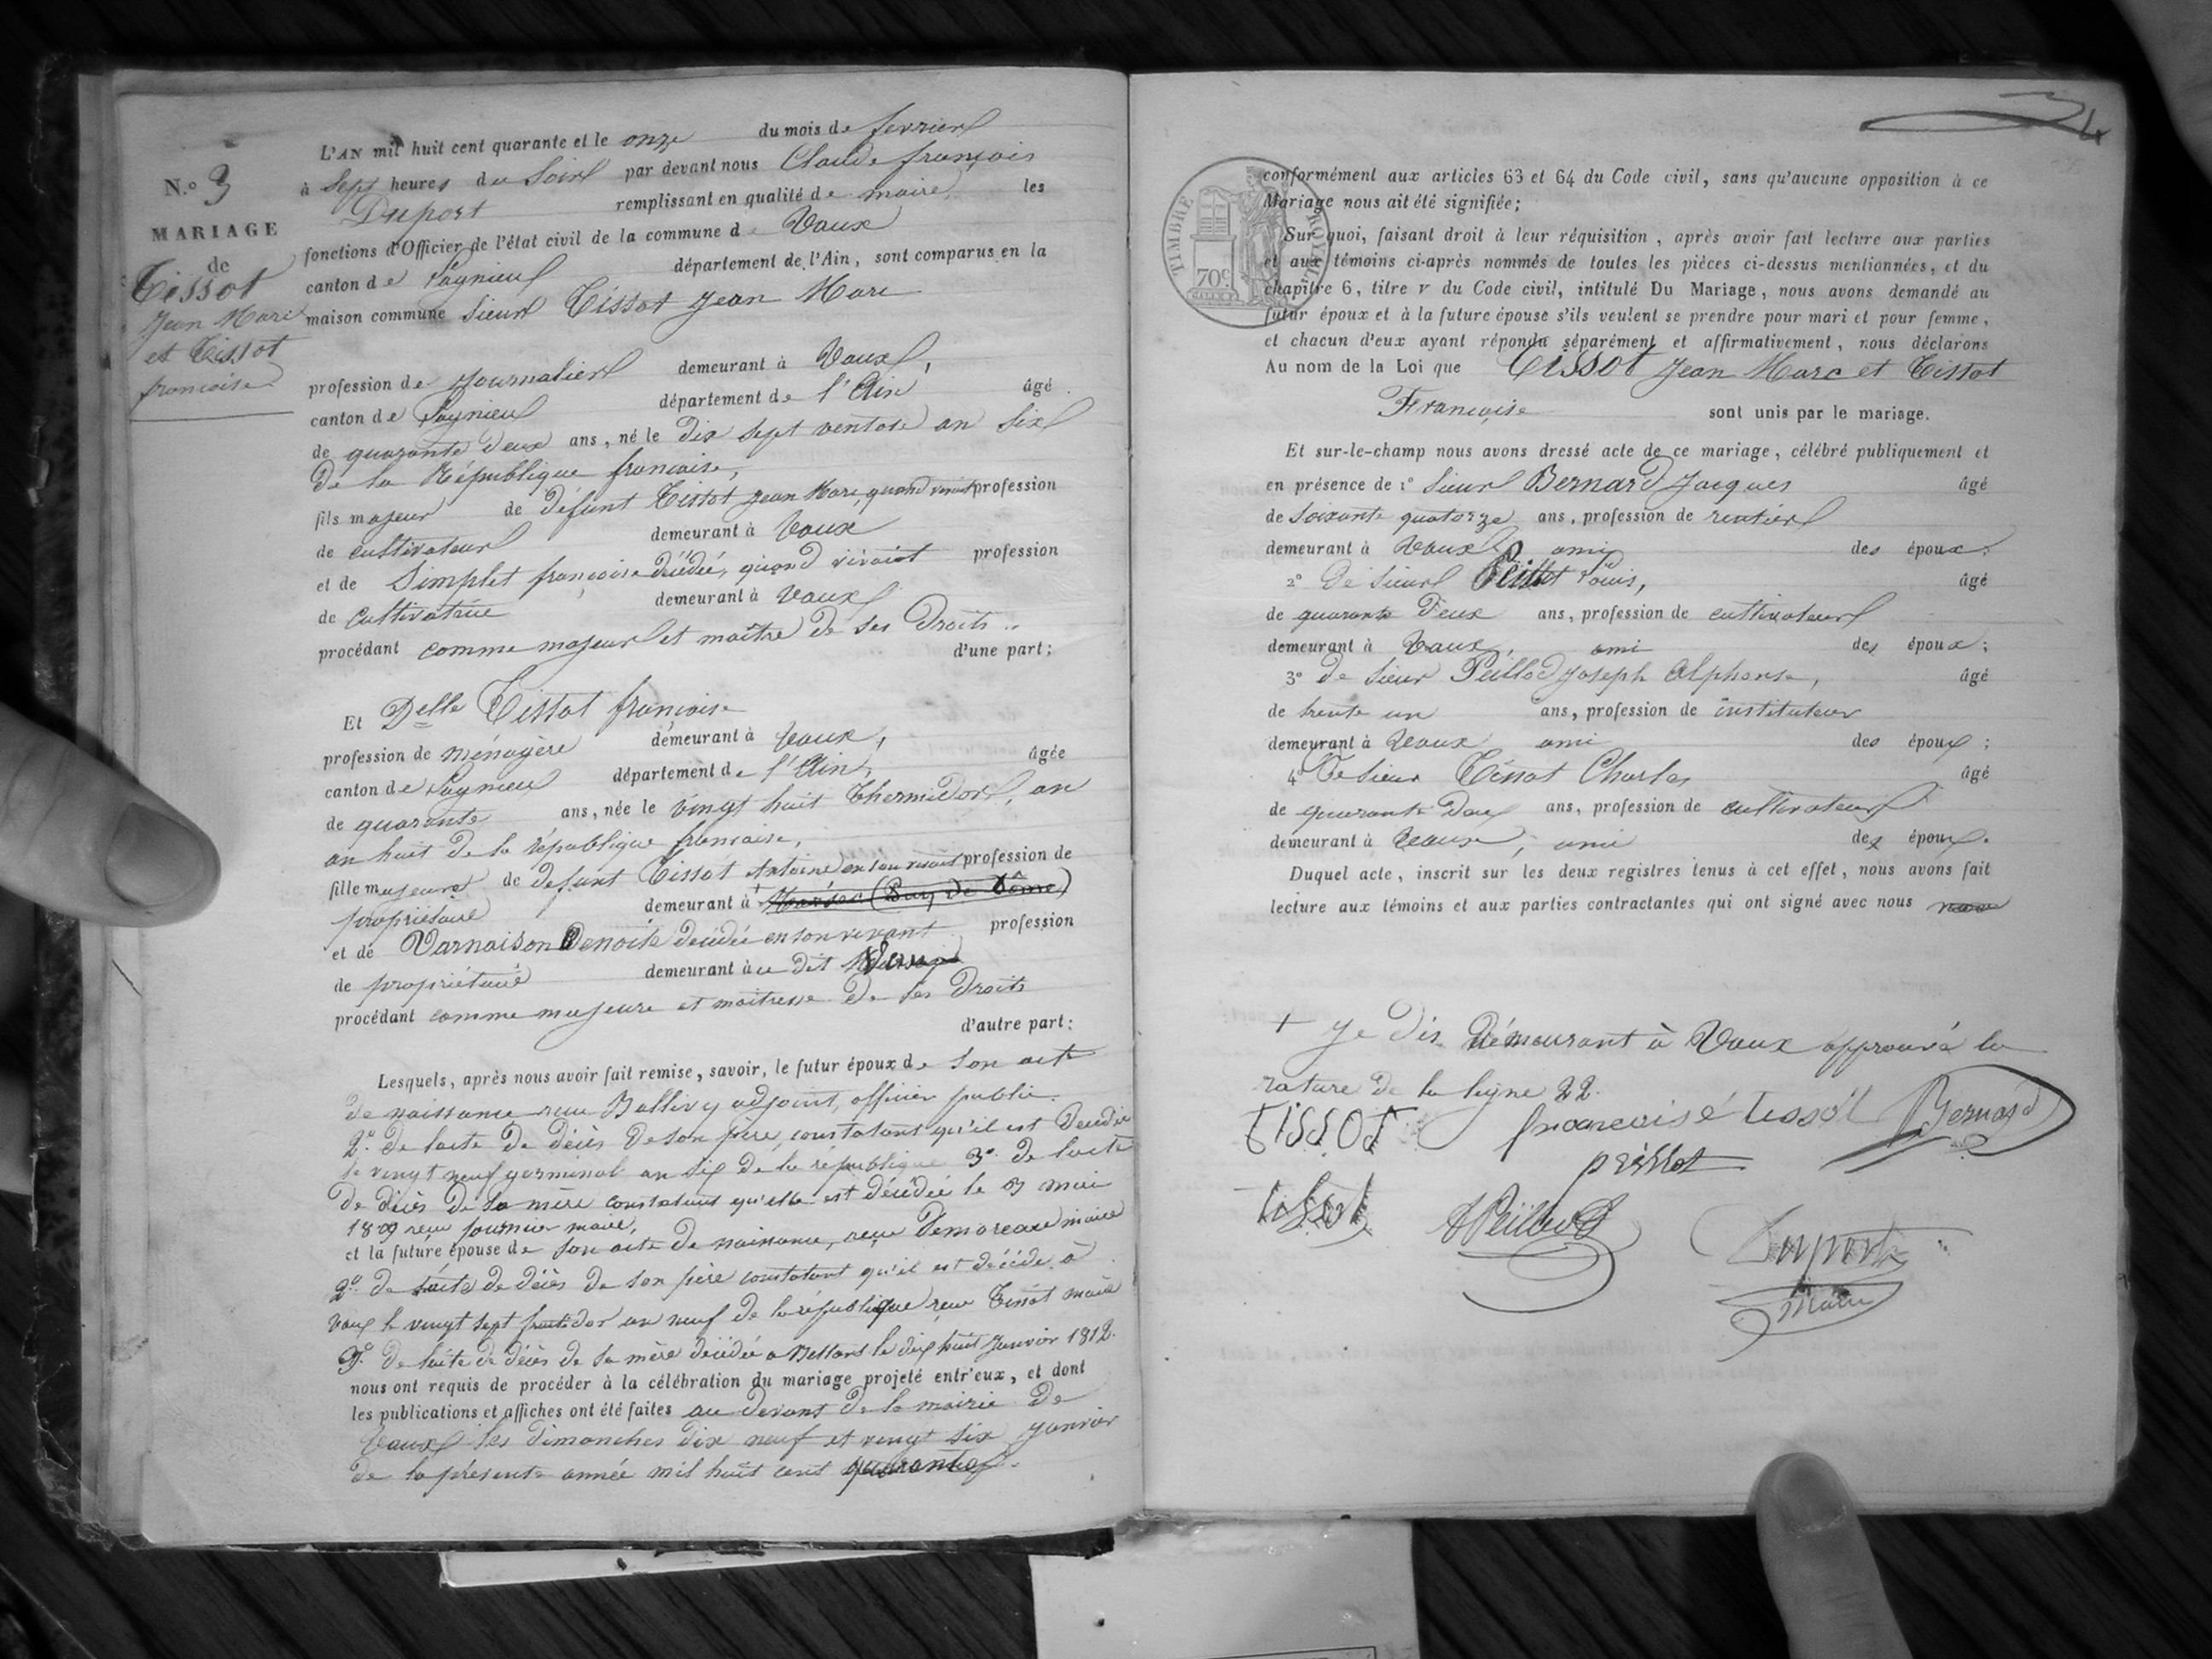 N.o 3
MARIAGE
de
Tissot
Jean Marc
et Tissot
francoise
L'AN mil huit cent quarante et le onze du mois de fevrier
à sept heures du soir par devant nous Claude françois
Duport remplissant en qualité de maire, les
fonctions d'Officier de l'état civil de la commune de Vaux
canton de Lagnieu département de l'Ain, sont comparus en la
maison commune sieur Tissot Jean Marc
profession de journalier demeurant à Vaux,
canton de Lagnieu département de l'Ain âgé
de quarante deux ans, né le dix sept ventose an six
de la République francaise,
fils majeur de defunt Tissot Jean Marc, quand vivait profession
de cultivateur demeurant à Vaux
et de Simplet françoise décédée, quand vivait profession
de cultivatrice demeurant à Vaux
procédant comme majeur et maître de ses droits
d'une part;
Et Delle Tissot francoise
profession de ménagère demeurant à Vaux,
canton de Lagnieu département de l'Ain, âgée
de quarante ans, née le vingt huit Thermidor, an
an huit de la république francaise,
fille majeure de defunt Tissot Antoine en son vivant profession de
propriétaire demeurant à + (Puy de Dôme)
et de Varnaison Benoite décédée en son vivant profession
de propriétaire demeurant à ce dit Vaux
procédant comme majeure et maitresse de ses droits
d'autre part:
Lesquels, après nous avoir fait remise, savoir, le futur époux de son acte
de naissance reçu Ballivy adjoint, officier public.
2o. de l'acte de décès de son père, constatant qu'il est décédé
le vingt neuf germinal an six de la république 3o. de l'acte
de décès de sa mère constatant qu'elle est décédée le mai
1809 reçu fournier maire,
et la future épouse de son acte de naissance, reçu maire
2o. de l'acte de décès de son père constatant qu'il est décédé à
Vaux le vingt sept fructidor an neuf de la république reçu Tissot maire
3o. de l'acte de décès de sa mère décédée a le dix huit Janvier 1812.
nous ont requis de procéder à la célébration du mariage projeté entr'eux, et dont
les publications et affiches ont été faites au devant de la mairie de
Vaux les dimanches dix neuf et vingt six janvier
de la présente année mil huit cent quarante.
TIMBRE ROYAL
70c
conformément aux articles 63 et 64 du Code civil, sans qu'aucune opposition à ce
Mariage nous ait été signifiée;
Sur quoi, faisant droit à leur réquisition, après avoir fait lecture aux parties
et aux témoins ci-après nommés de toutes les pièces ci-dessus mentionnées, et du
chapitre 6, titre v du Code civil, intitulé Du Mariage, nous avons demandé au
futur époux et à la future épouse s'ils veulent se prendre pour mari et pour femme,
et chacun d'eux ayant répondu séparément et affirmativement, nous déclarons
Au nom de la Loi que Tissot Jean Marc et Tissot
Françoise sont unis par le mariage.
Et sur-le-champ nous avons dressé acte de ce mariage, célébré publiquement et
en présence de 1o sieur Bernard Jacques âgé
de soixante quatorze ans, profession de rentier
demeurant à Vaux ami des époux;
2o De sieur Peillot Louis, âgé
de quarante deux ans, profession de cultivateur
demeurant à Vaux, ami des époux;
3o de sieur Peillod Joseph Alphonse, âgé
de trente un ans, profession de instituteur
demeurant à Vaux ami des époux;
4o De sieur Tissot Charles âgé
de quarante deux ans, profession de cultivateur
demeurant à Vaux, ami des époux.
Duquel acte, inscrit sur les deux registres tenus à cet effet, nous avons fait
lecture aux témoins et aux parties contractantes qui ont signé avec nous
+ Je dis demeurant à Vaux approuvé la
rature de la ligne 22.
TISSOT francoise tissot Bernard
peillot
tissot APeillod Duport
Maire